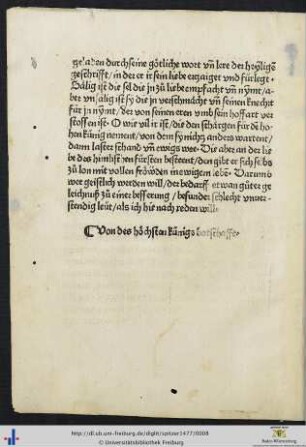 geladen durch seine götliche wort vñ lere der heyligẽ
geschrifft / in der er ir sein liebe erzaiget vnd fürlegt.
Sälig ist die sel die jn zů liebe empfacht vñ nymt / a-
ber vnsälig ist sy die jn verschmächt vñ seinen knecht
für jn nymt / der von seinen eren vmb sein hoffart ver
stossen ist. O wie vil ir ist / die den schärgen für dẽ ho-
hen künig nement / von dem sy nichtz anders wartent /
dann laster schand vñ ewigs wee. Die aber an der lie
be des himlischen fürsten besteent / den gibt er sich selbs
zů lon mit vollen fröwden in ewigem lebẽ. Darumb
wer geistlich werden will / der bedarff etwan gůter ge
leichnuß zů einer besserung / besunder schlecht vnuer-
stendig leüt / als ich hie nach reden will.
Von des höchsten künigs botschafft.
http://dl.ub.uni-freiburg.de/diglit/spitzer1477/0008
© Universitätsbibliothek Freiburg
Baden-Württemberg